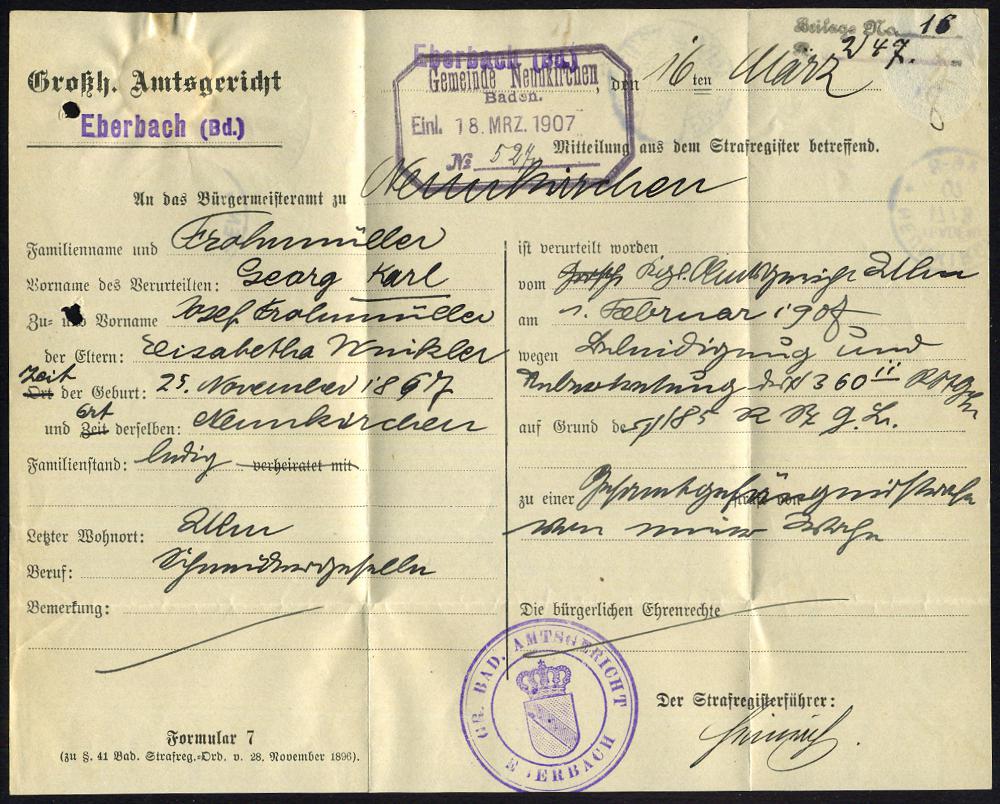 Beilage No. 16
2/47.
Großh. Amtsgericht
Eberbach (Bd.)
Eberbach (Bd.), den 16ten März
Gemeinde Neunkirchen
Baden.
Einl. 18. MRZ. 1907
№ 527
Mitteilung aus dem Strafregister betreffend.
An das Bürgermeisteramt zu Neunkirchen
Familienname und Frohnmüller
Vorname des Verurteilten: Georg Karl
Zu- und Vorname Josef Frohnmüller
der Eltern: Elisabetha Winkler
Zeit
Ort der Geburt: 25. November 1867
Ort
und Zeit derselben: Neunkirchen
Familienstand: ledig verheiratet mit
Letzter Wohnort: Ulm
Beruf: Schneidergeselle
Bemerkung:
ist verurteilt worden
vom Kgl. Amtsgericht Ulm
am 1. Februar 1907
wegen Beleidigung und
Übertretung des § 360 11 RStGB
auf Grund des § 185 R St G B.
zu einer Gesamtgefängnisstrafe
von einer Woche
Die bürgerlichen Ehrenrechte
GR. BAD. AMTSGERICHT EBERBACH
Der Strafregisterführer:
Formular 7
(zu §. 41 Bad. Strafreg.-Ord. v. 28. November 1896).